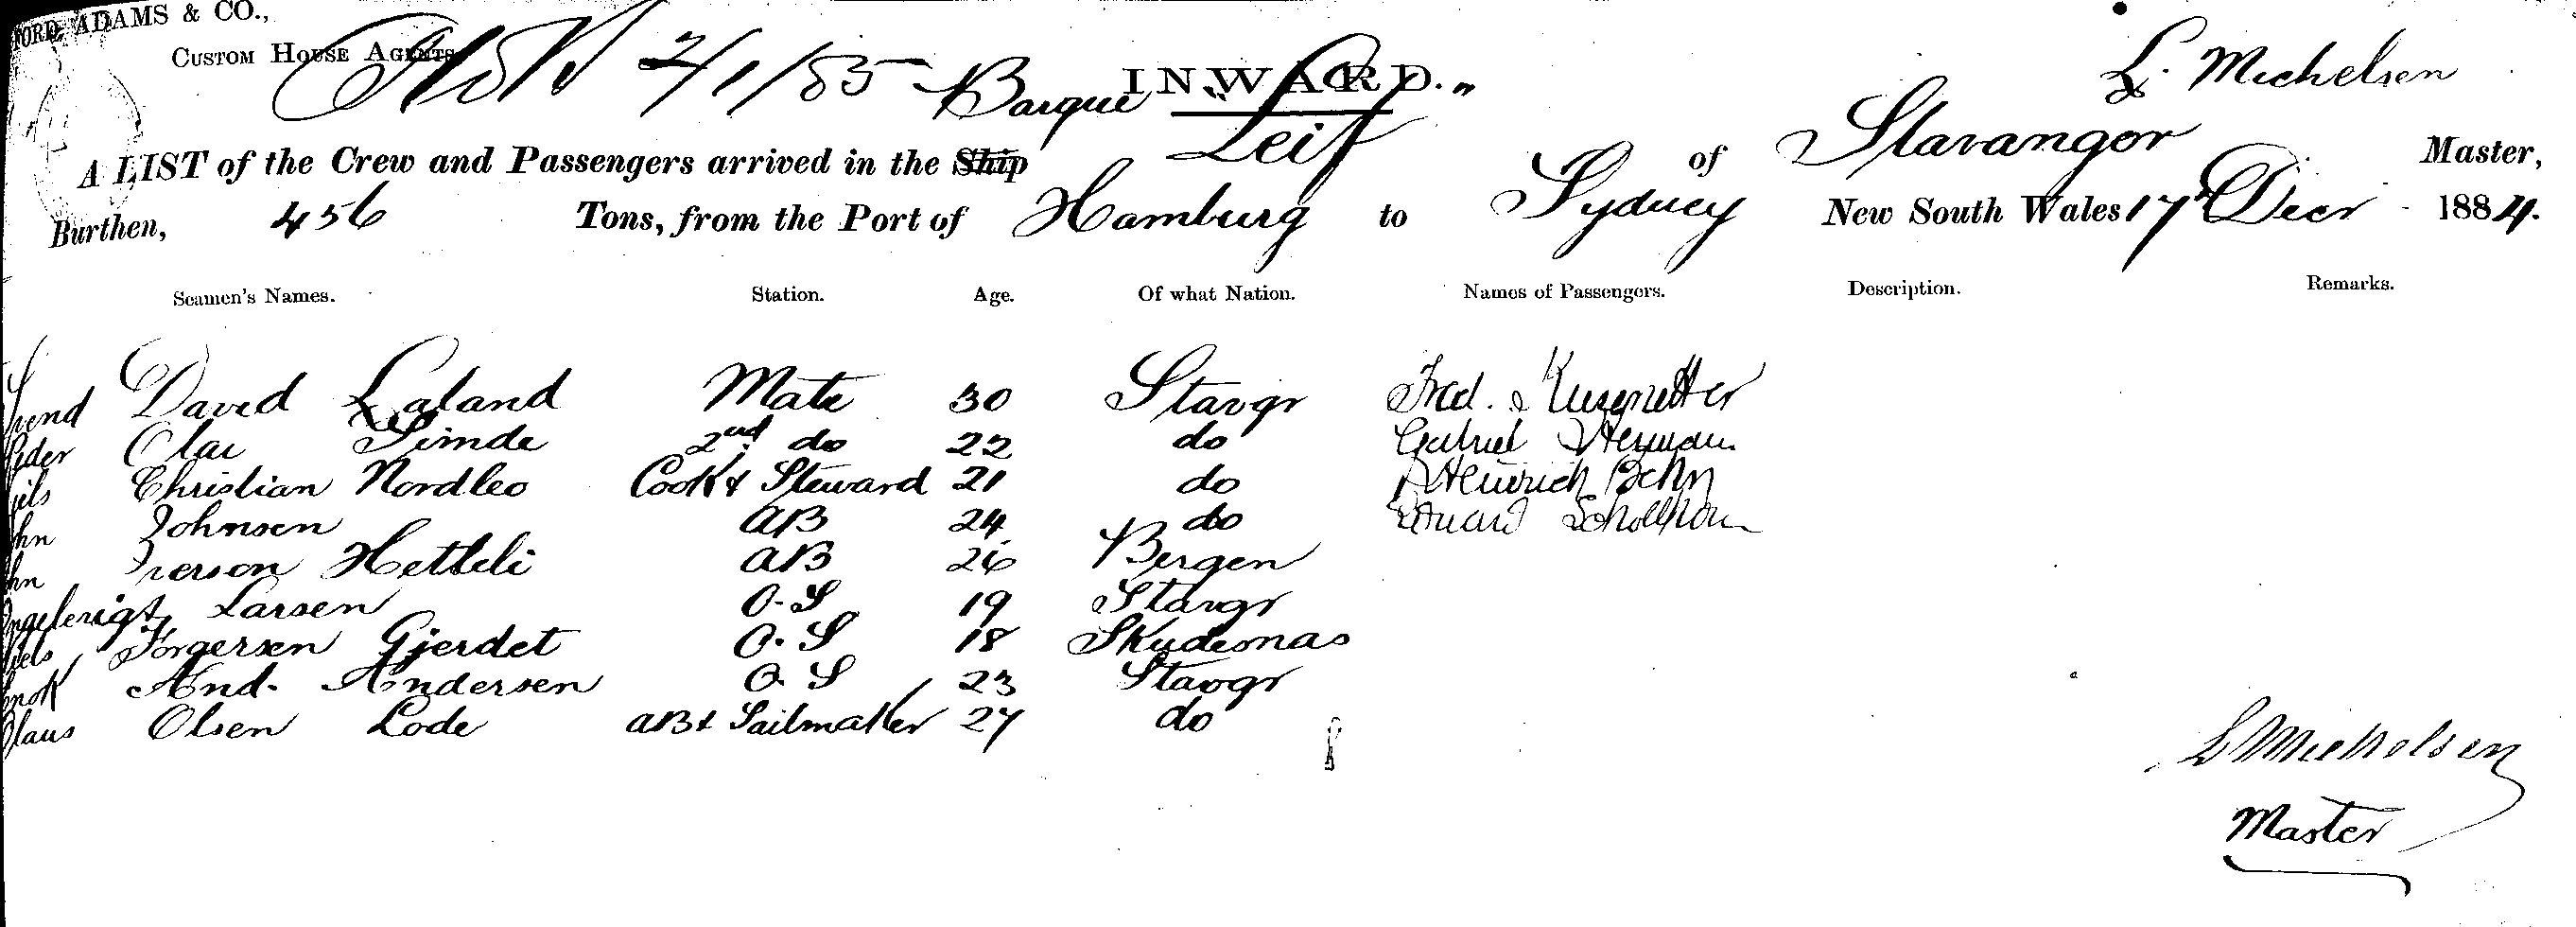 FORD, ADAMS & CO.,
CUSTOM HOUSE AGENTS
2/1/85
INWARD.
L. Michelsen
A LIST of the Crew and Passengers arrived in the Ship Barque "Leif" of Stavanger Master,
Burthen, 456 Tons, from the Port of Hamburg to Sydney New South Wales 17th Decr 1884.
Seamen's Names. Station. Age. Of what Nation. Names of Passengers. Description. Remarks.
David Laland Mate 30 Stavgr Fred.
Peder Olai Simde 2nd do 22 do Gabriel Herman
Nils Christian Nordleo Cook & Steward 21 do Heinrich Behn
John Johnsen AB 24 do Eduard
John Iverson Hetteli AB 26 Bergen
Larsen O.S 19 Stavgr
Niels Torgersen Gjerdet O.S 18 Skudesnas
Enok And. Andersen O.S 23 Stavgr
Olaus Olsen Lode AB & Sailmaker 27 do
L Michelsen
Master